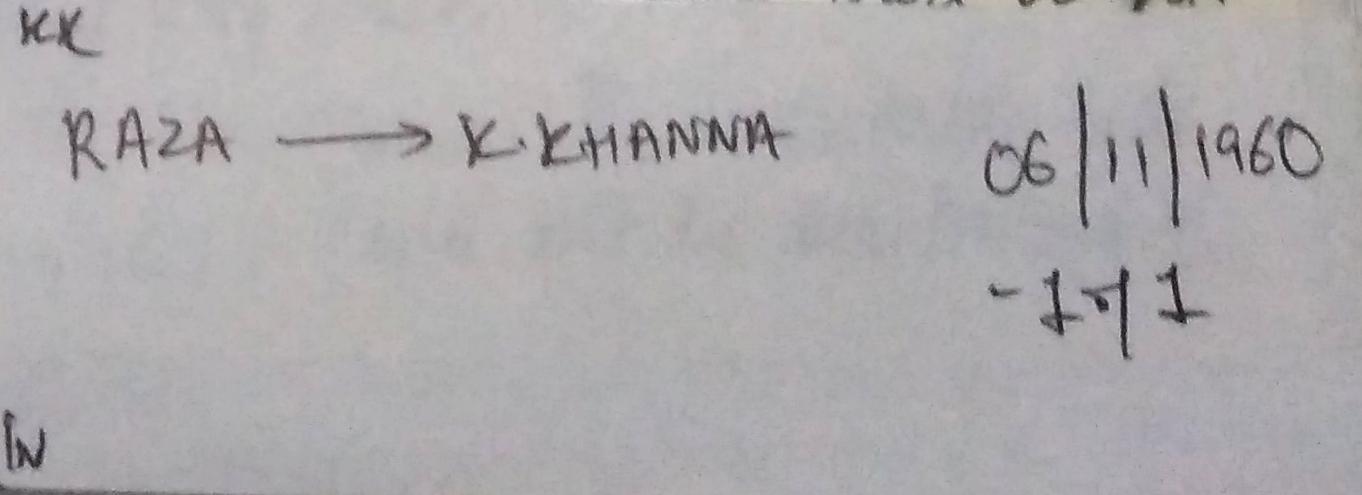 KK
RAZA → K.KHANNA 06/11/1960
- 1 of 1
IN